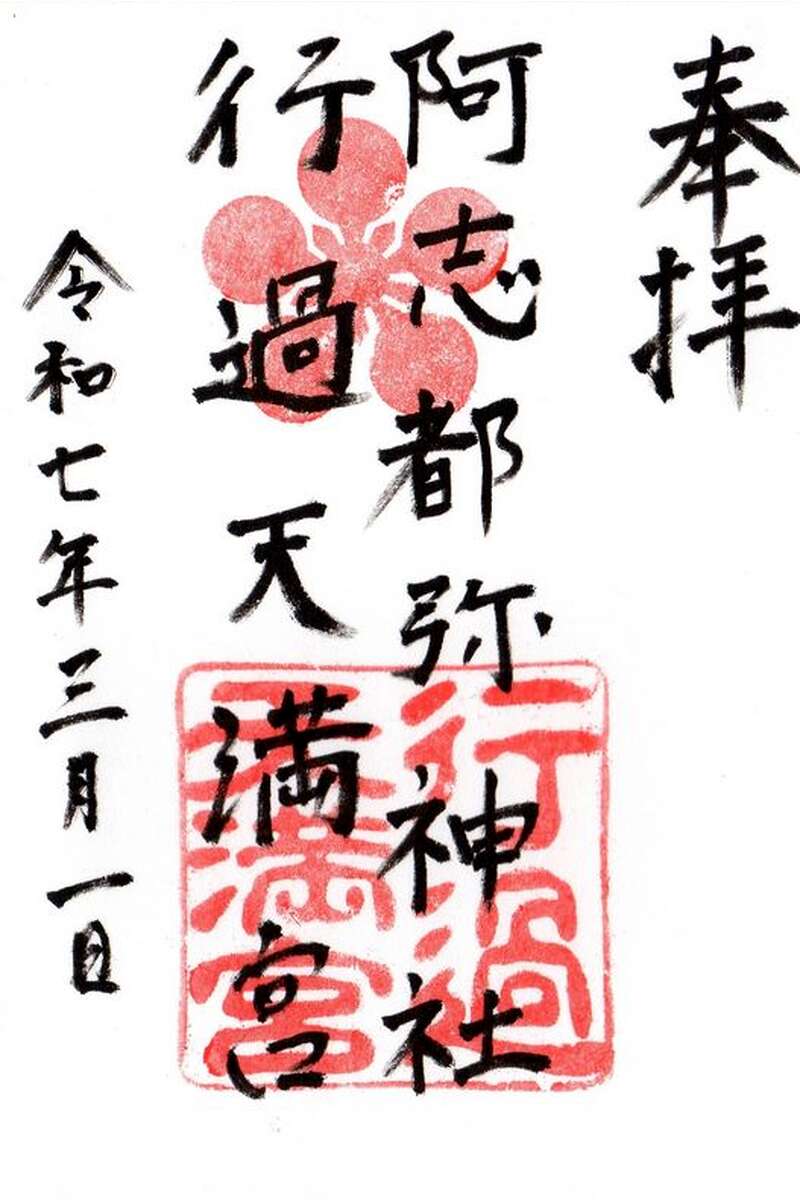 奉拝
阿志都弥神社
行過天満宮
令和七年三月一日
行過
天満宮